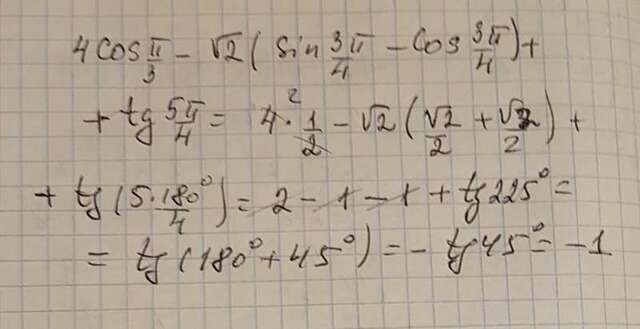 4 cos π/3 − √2 ( sin 3π/4 − cos 3π/4 ) +
+ tg 5π/4 = 4² · 1/2 − √2 ( √2/2 + √2/2 ) +
+ tg (5·180°/4) = 2 − 1 − 1 + tg 225° =
= tg (180° + 45°) = − tg 45° = −1